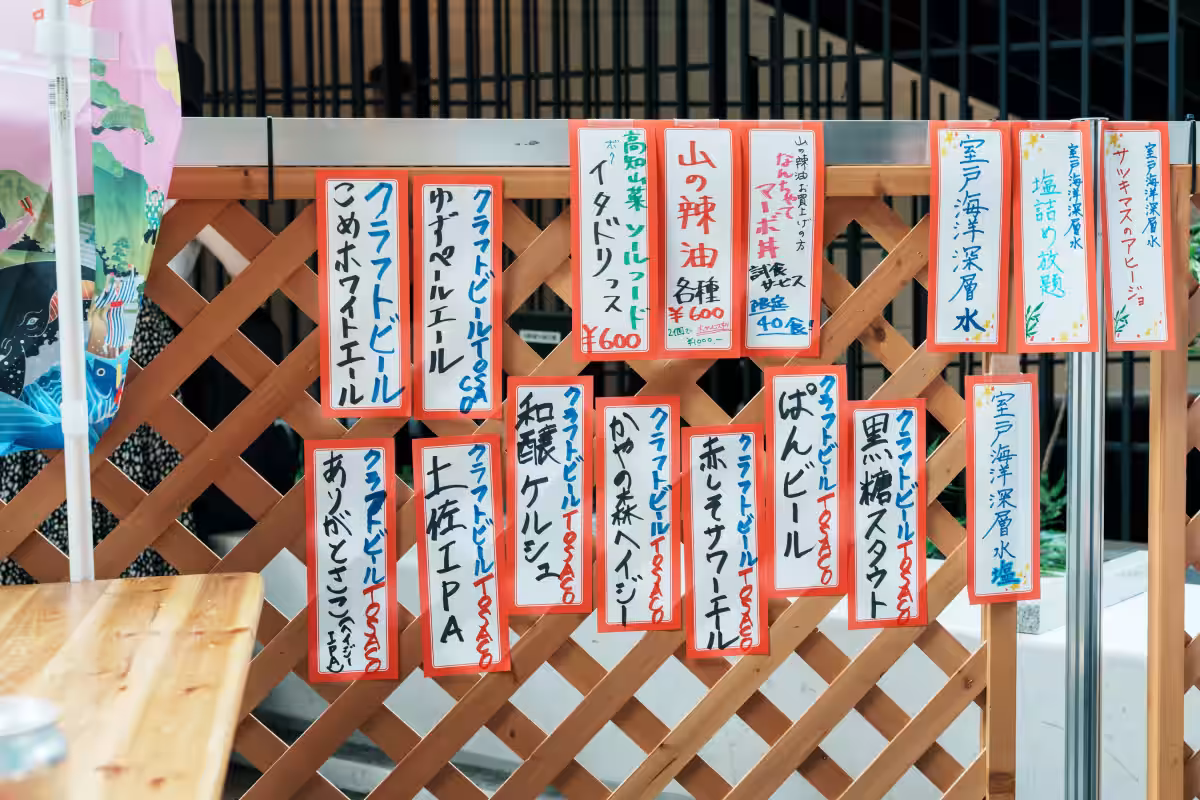 クラフトビール
こめホワイトエール
クラフトビールTOSACO
ゆずペールエール
高知山菜 ソールフード
イタドリっス
¥600
山の辣油
各種
¥600
¥1000.-
山の辣油お買上げの方
なんちゃって
マーボ丼
試食
サービス
限定
40食
室戸海洋深層水
室戸海洋深層水
塩詰め放題
室戸海洋深層水
サツキマスのアヒージョ
クラフトビールTOSACO
ありがとさこ
ヘイジー
IPA
クラフトビールTOSACO
土佐IPA
クラフトビールTOSACO
和醸ケルシュ
クラフトビールTOSACO
かやの森ヘイジー
クラフトビールTOSACO
赤しそサワーエール
クラフトビールTOSACO
ぱんビール
クラフトビールTOSACO
黒糖スタウト
室戸海洋深層水塩